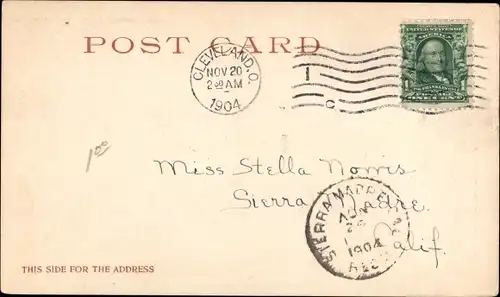 POST CARD
CLEVELAND, O.
NOV 20
2 00 AM
1904
1
C
1 00
Miss Stella Norris
Sierra Madre.
Calif.
SIERRA MADRE
1904
REC'D
THIS SIDE FOR THE ADDRESS